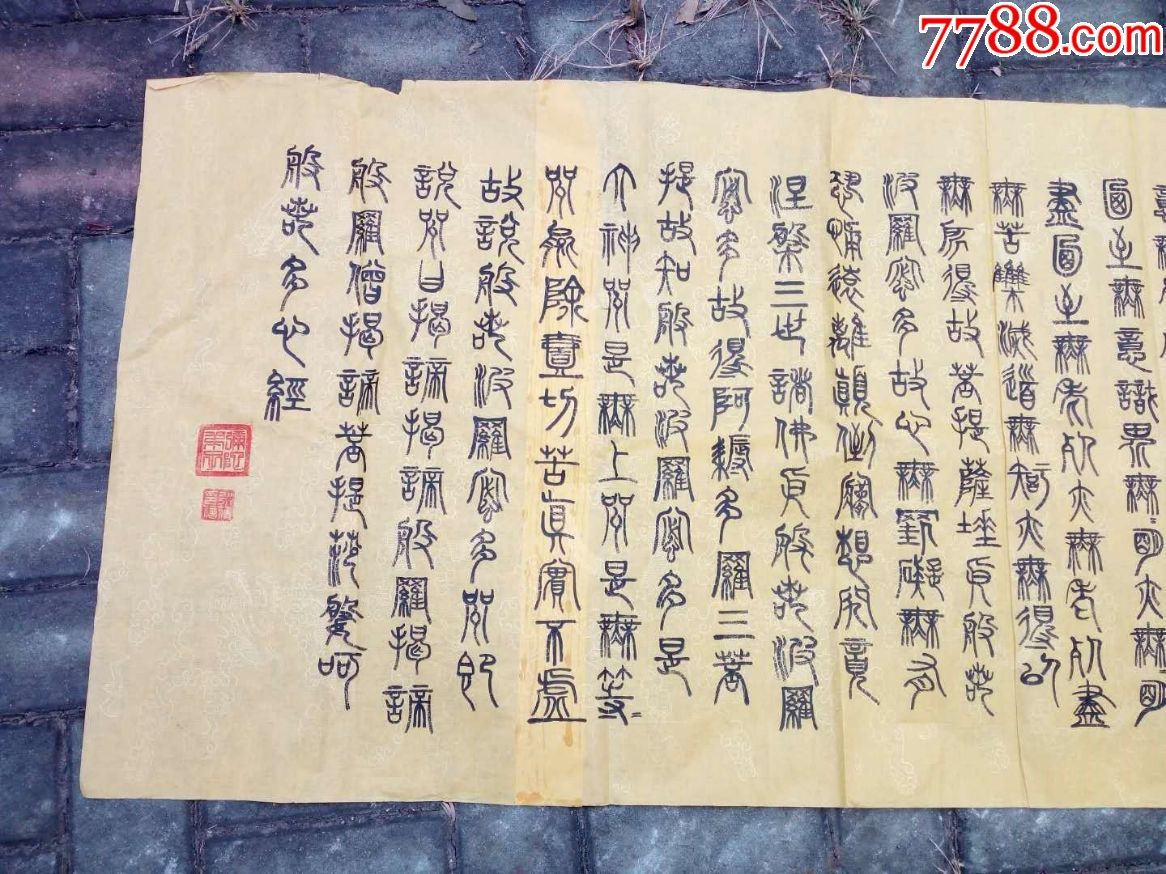 7788.com
乃至無意識界無〻明亦無明
盡乃至無老死亦無老死盡
無苦集滅道無智亦無得以
無所得故菩提薩埵依般若
波羅蜜多故心無罣礙無有
恐怖遠離顛倒夢想究竟
涅槃三世諸佛依般若波羅
蜜多故得阿耨多羅三菩
提故知般若波羅蜜多是
大神咒是無上咒是無等〻
咒能除壹切苦真實不虛
故說般若波羅蜜多咒即
說咒曰揭諦揭諦般羅揭諦
般羅僧揭諦菩提薩婆呵
般若多心經